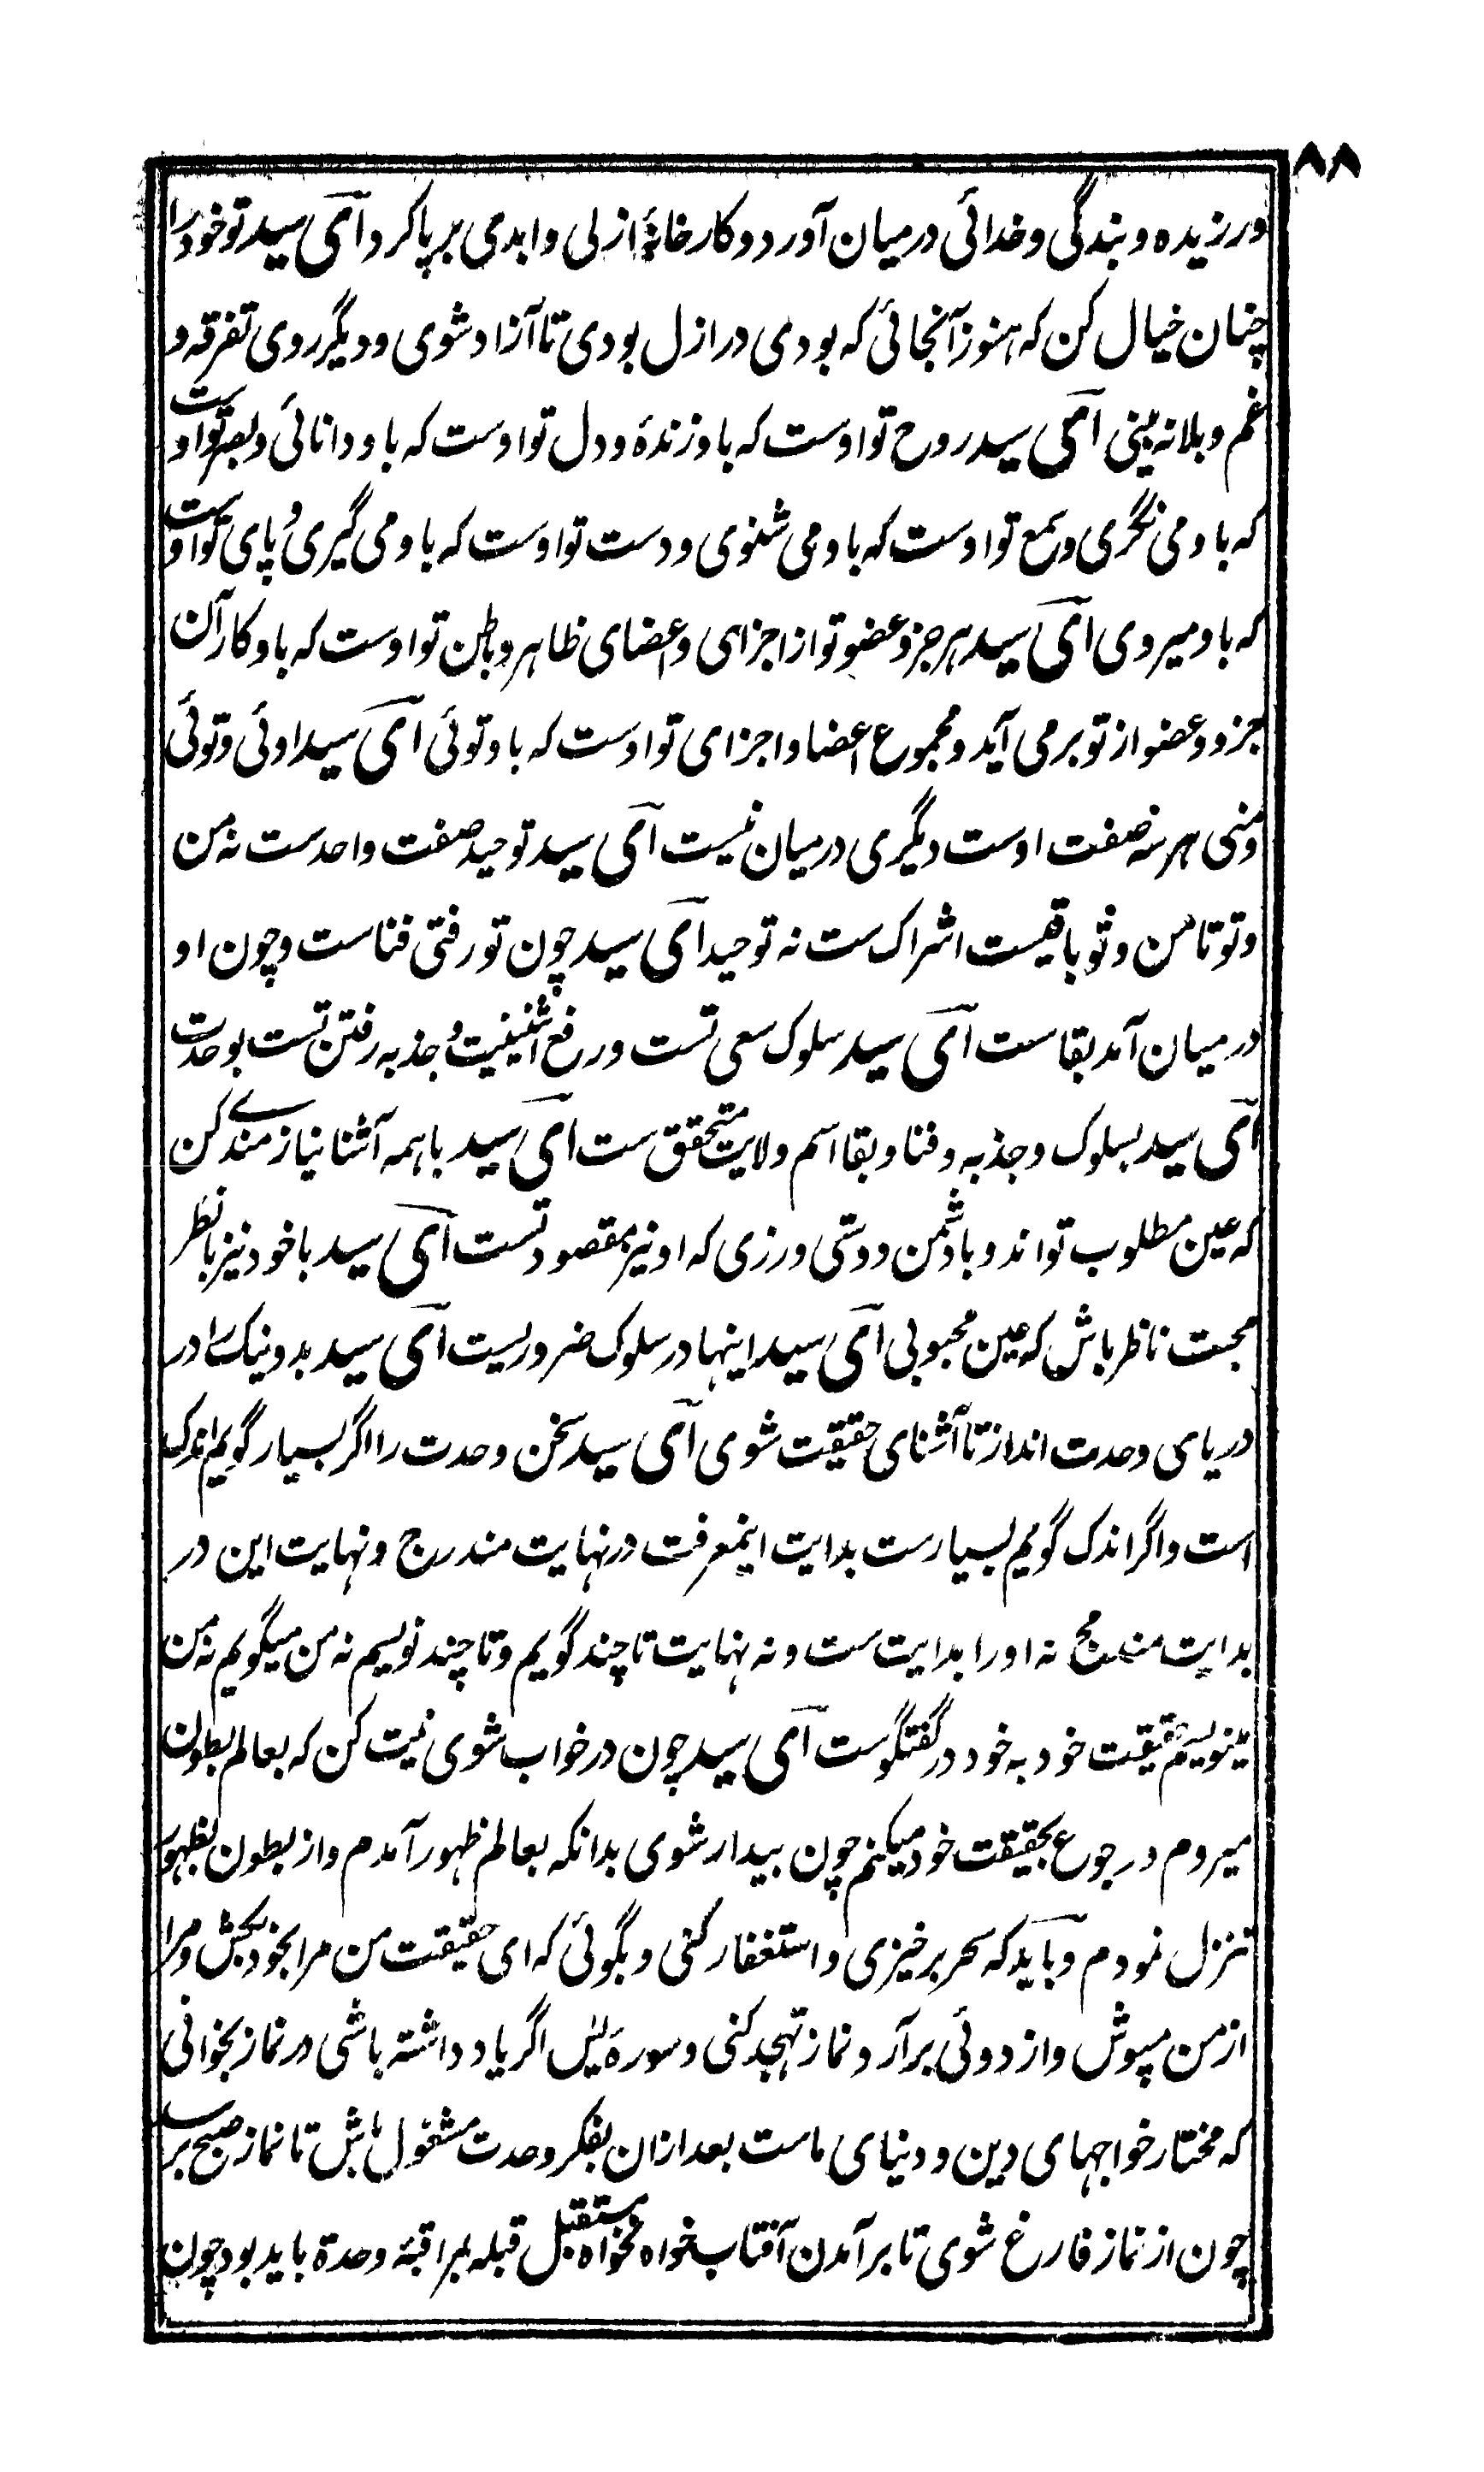 ۸۸
ورزیده و بندگی و خدائی درمیان آورد و کارخانهٔ ازلی و ابدی برپا کرد آی سید تو خود را
چنان خیال کن که هنوز آنجائی که بودی در ازل بودی تا آزاد شوی و دیگر روی تفرقه و
غم و بلا نه بینی آی سید روح تو اوست که باو زندهٔ و دل تو اوست که باو دانائی و بصر تو اوست
که باو می نگری و سمع تو اوست که باو می شنوی و دست تو اوست که باو می گیری و پای تو اوست
که باو میروی آی سید هر جز و عضو تو از اجزای و اعضای ظاهر و باطن تو اوست که باو کار آن
جزو و عضو از تو برمی آید و مجموع اعضا و اجزای تو اوست که باو توئی آی سید اوئی و توئی
و منی هر سه صفت اوست دیگری درمیان نیست آی سید توحید صفت واحدست نه من
و تو تا من و تو باقیست اشراک ست نه توحید آی سید چون تو رفتی فناست و چون او
درمیان آمد بقاست آی سید سلوک سعی تست و رفع اثنینیت و جذبه رفتن تست بوحدت
آی سید بسلوک و جذبه و فنا و بقا اسم ولایت متحقق ست آی سید با همه آشنا نیازمندے کن
که عین مطلوب تو اند و با دشمن دوستی ورزی که او نیز مقصود تست آی سید با خود نیز با نظر
محبت ناظر باش که عین محبوبی آی سید اینها در سلوک ضروریست آی سید بد و نیک را در
دریای وحدت انداز تا آشنای حقیقت شوی آی سید سخن وحدت را اگر بسیار گویم اندک
است و اگر اندک گویم بسیارست بدایت اینمعرفت در نهایت مندرج و نهایت این در
بدایت مندمج نه او را بدایت ست و نه نهایت تا چند گویم و تا چند نویسم نه من میگویم نه من
مینویسم حقیقت خود به خود در گفتگوست آی سید چون در خواب شوی نیت کن که بعالم بطون
میروم و رجوع بحقیقت خود میکنم چون بیدار شوی بدانکه بعالم ظهور آمدم و از بطون بظهور
تنزل نمودم و باید که سحر برخیزی و استغفار کنی و بگوئی که ای حقیقت من مرا بخود بکش و مرا
از من بپوش و از دوئی برآر و نماز تهجد کنی و سورهٔ یٰس اگر یاد داشته باشی در نماز بخوانی
که مختار خواجهای دین و دنیای ماست بعد ازان بفکر وحدت مشغول باش تا نماز صبح برسد
چون از نماز فارغ شوی تا برآمدن آفتاب خواه نخواه مستقبل قبله بمراقبهٔ وحدة باید بود چون